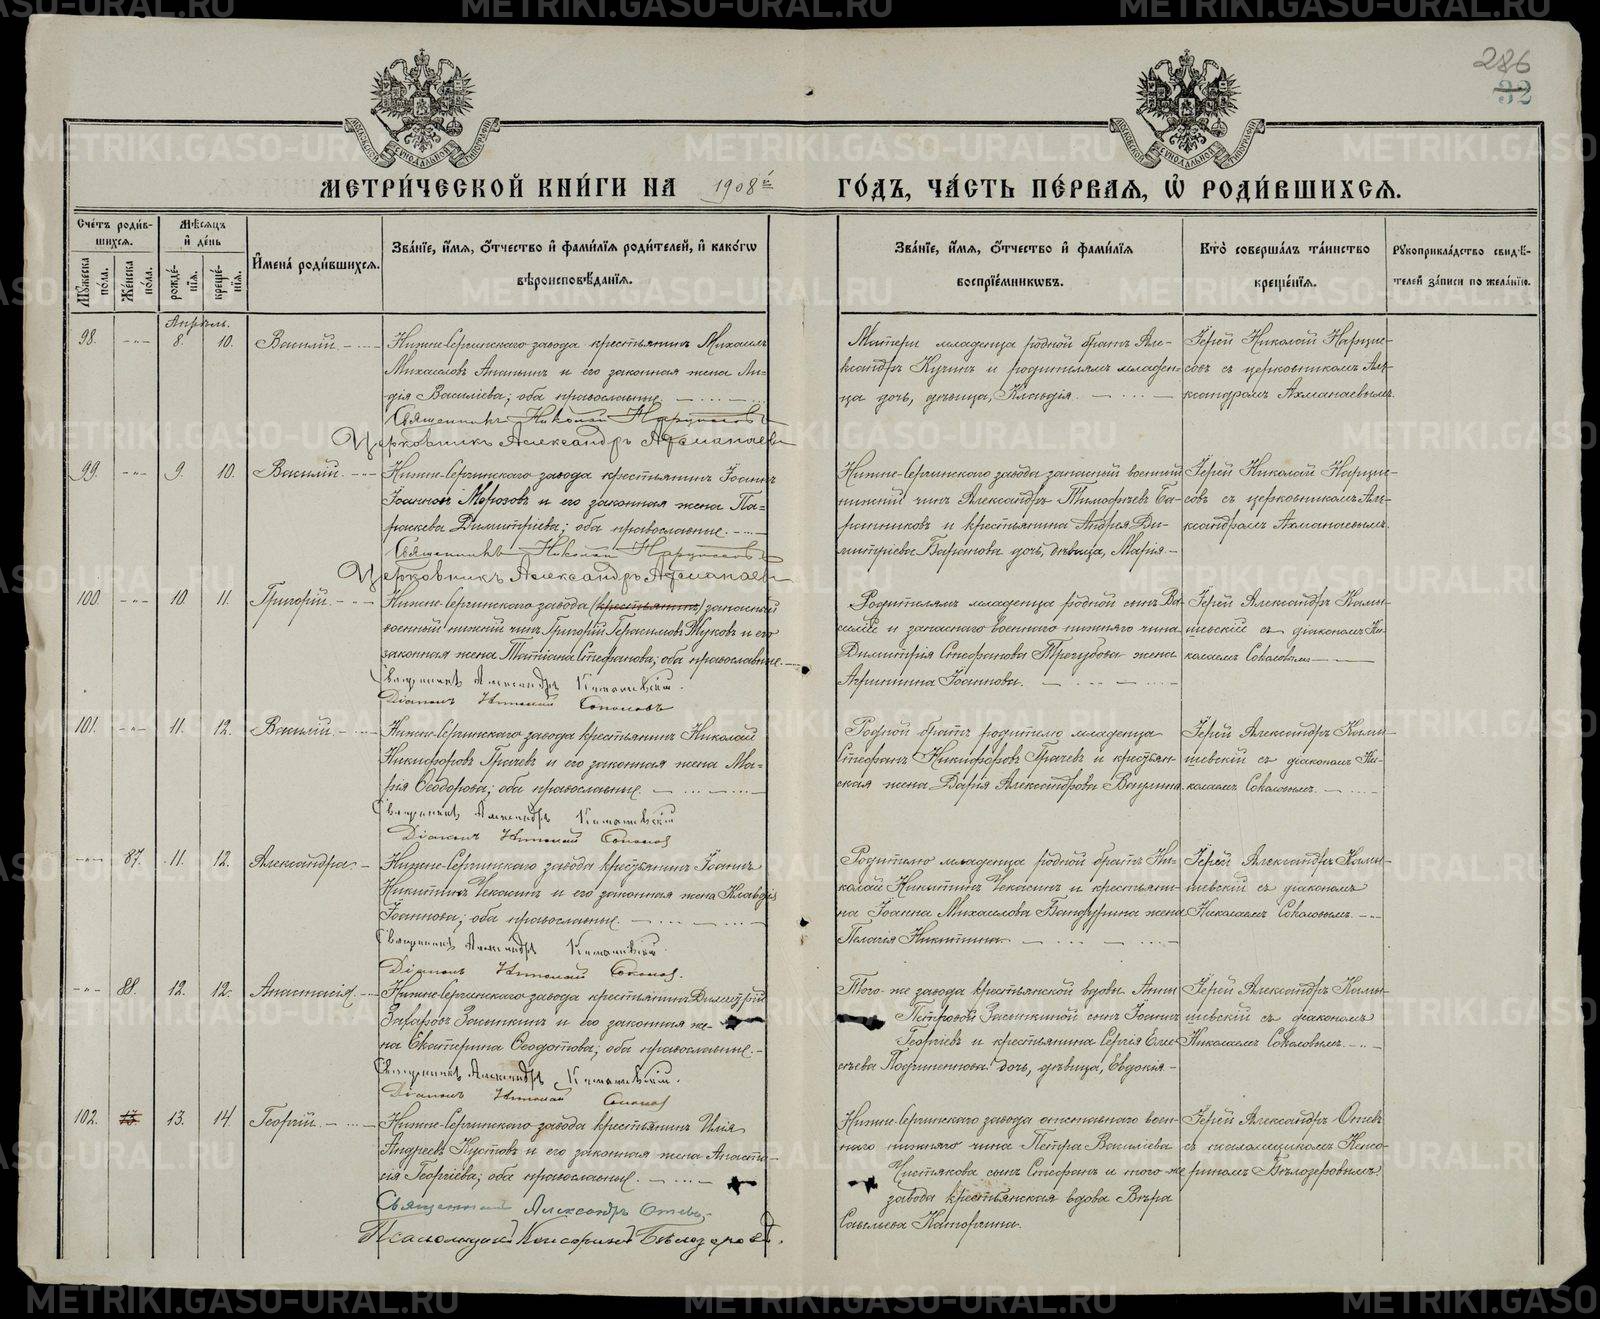 286
32
МЕТРИ́ЧЕСКОЙ КНИ́ГИ НА 1908й ГО́ДЪ, ЧА́СТЬ ПЕ́РВАѦ, Ѡ҆ РОДИ́ВШИХСѦ.
Сче́тъ роди́вшихсѧ.
Мꙋ́жеска по́ла.
Же́нска по́ла.
Мѣ́сѧцъ и҆ де́нь
рожде́нїѧ.
креще́нїѧ.
И҆мена̀ роди́вшихсѧ.
Зва́нїе, и҆́мѧ, ѻ҆́тчество и҆ фами́лїѧ роди́телей, и҆ како́гѡ
вѣроисповѣ́данїѧ.
Зва́нїе, и҆́мѧ, ѻ҆́тчество и҆ фами́лїѧ
воспрїе́мникѡвъ.
Кто̀ соверша́лъ та́инство
креще́нїѧ.
Рꙋкоприкла́дство свидѣ́-
телей за́писи по жела́нїю.
Апрѣль.
98. -"- 8. 10. Василій.
Нижне-Сергинскаго завода крестьянинъ Михаилъ
Михаиловъ Ананьинъ и его законная жена Ли-
дія Василіева; оба православные.
Священникъ Николай Нарциссовъ
Церковникъ Александръ Ахманаевъ
Матери младенца родной братъ Але-
ксандръ Кучинъ и родителямъ младен-
ца дочь, дѣвица, Клавдія.
Іерей Николай Нарцис-
совъ съ церковникомъ Але-
ксандромъ Ахманаевымъ.
99. -"- 9. 10. Василій.
Нижне-Сергинскаго завода крестьянинъ Іоаннъ
Іоанновъ Морозовъ и его законная жена Па-
раскева Димитріева; оба православные.
Священникъ Николай Нарциссовъ
Церковникъ Александръ Ахманаевъ
Нижне-Сергинскаго завода запасный военный
нижній чинъ Александръ Тимофеевъ Ба-
ранниковъ и крестьянина Андрея Ди-
митріева Баранова дочь, дѣвица, Марія
Іерей Николай Нарцис-
совъ съ церковникомъ Але-
ксандромъ Ахманаевымъ.
100. -"- 10. 11. Григорій.
Нижне-Сергинскаго завода (крестьянинъ) запасный
военный нижній чинъ Григорій Герасимовъ Жуковъ и его
законная жена Татіана Стефанова; оба православные.
Священникъ Александръ
Діаконъ Николай Соколовъ
Родителямъ младенца родной сынъ Ва-
силій и запаснаго военнаго нижняго чина
Димитрія Стефанова Трегубова жена
Агриппина Іоаннова.
Іерей Александръ
съ діакономъ Ни-
колаемъ Соколовымъ
101. -"- 11. 12. Василій.
Нижне-Сергинскаго завода крестьянинъ Николай
Никифоровъ Грачевъ и его законная жена Ма-
рія Ѳеодорова; оба православные.
Священникъ Александръ
Діаконъ Николай Соколовъ
Родной братъ родителю младенца
Стефанъ Никифоровъ Грачевъ и крестьян-
ская жена Дарія Александрова Ваулина.
Іерей Александръ
съ діакономъ Ни-
колаемъ Соколовымъ.
-"- 87. 11. 12. Александра.
Нижне-Сергинскаго завода крестьянинъ Іоаннъ
Никитинъ Чекасинъ и его законная жена Клавдія
Іоаннова; оба православные.
Священникъ Александръ
Діаконъ Николай Соколовъ.
Родителю младенца родной братъ Ни-
колай Никитинъ Чекасинъ и крестьяни-
на Іоанна Михаилова жена
Пелагія Никитина
Іерей Александръ
съ діакономъ
Николаемъ Соколовымъ.
-"- 88. 12. 12. Анастасія.
Нижне-Сергинскаго завода крестьянинъ Димитрій
Захаровъ Засыпкинъ и его законная же-
на Екатерина Ѳеодотова; оба православные.
Священникъ Александръ
Діаконъ Николай Соколовъ
Того-же завода крестьянской вдовы Анны
Петровой Засыпкиной сынъ Іоаннъ
Георгіевъ и крестьянина Сергія Ели-
сѣева дочь, дѣвица, Евдокія
Іерей Александръ
съ діакономъ
Николаемъ Соколовымъ.
102. 13. 13. 14. Георгій.
Нижне-Сергинскаго завода крестьянинъ Илія
Андреевъ Кустовъ и его законная жена Анаста-
сія Георгіева; оба православные.
Священникъ Александръ Отевъ.
Псаломщикъ Ксенофонтъ Бѣлозеровъ.
Нижне-Сергинскаго завода отставнаго воен-
наго нижняго чина Петра Василіева
Чистякова сынъ Стефанъ и того-же
завода крестьянская вдова Вѣра
Савельева
Іерей Александръ Отевъ
съ псаломщикомъ
Бѣлозеровымъ.